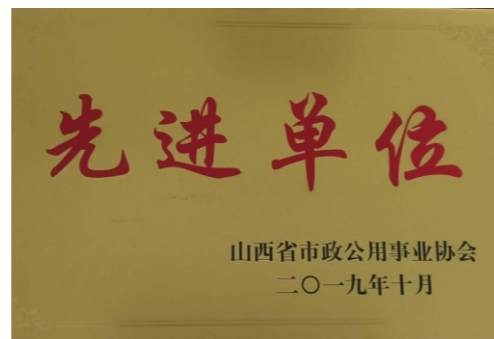 先进单位
山西省市政公用事业协会
二〇一九年十月